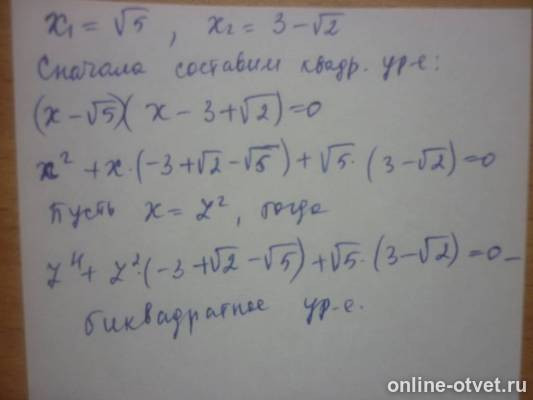 x₁ = √5 , x₂ = 3 − √2
Сначала составим квадр. ур-е:
(x − √5)(x − 3 + √2) = 0
x² + x·(−3 + √2 − √5) + √5·(3 − √2) = 0
Пусть x = z², тогда
z⁴ + z²·(−3 + √2 − √5) + √5·(3 − √2) = 0 –
биквадратное ур-е.
online-otvet.ru